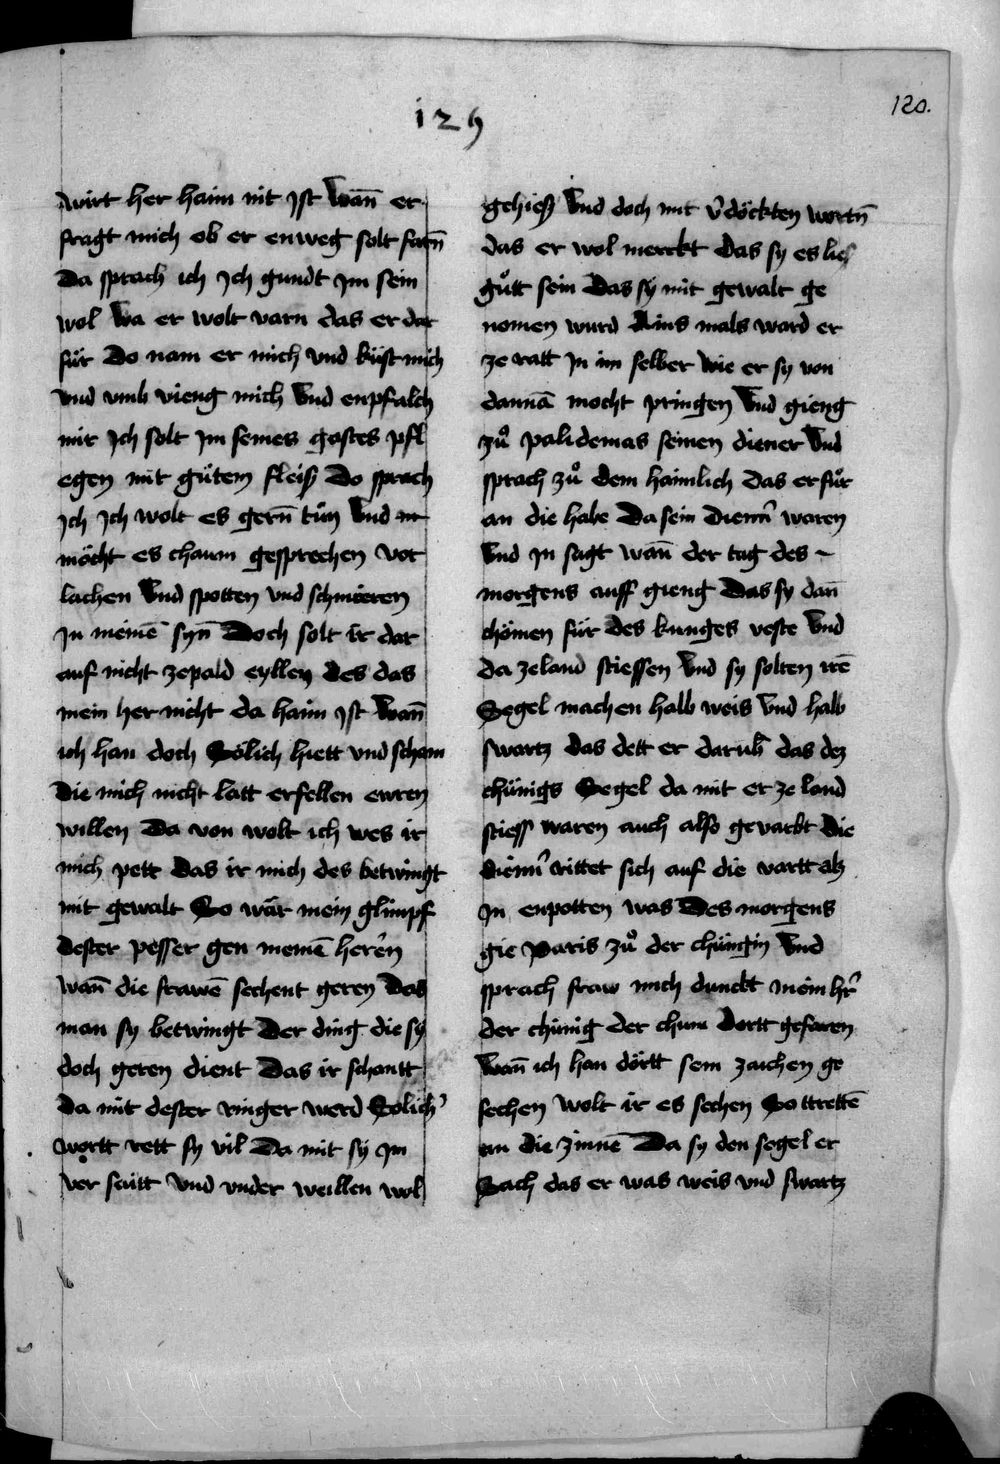 120.
129
wirt her haim nit Jst Wañ er
fragt mich ob er enweg solt farñ
Da sprach ich Jch gundt Jm sein
wol Wa er wolt varn das er dar
für Do nam er mich vnd küst mich
vnd vmb vieng mich Vnd enpfalch
mir Jch solt Jm seines gastes pfl
egen mit gütem fleiß Do sprach
Jch Jch wolt es gerñ tün Vnd
möcht es chaum gesprechen vor
lachen Vnd spotten vnd schmieren
Jn meinē syñ Doch solt ir dar
auf nicht zepald eyllen des das
mein her nicht da haim Jst Wañ
ich han doch Sölich hiett vnd scham
Die mich nicht latt erfellen ewren
willen Da von wolt ich wes ir
mich pett das ir mich des betwingt
mit gewalt So wär mein glimpf
dester pesser gen meinē heren
Wañ die frawē sechent geren Das
man sy betwingt Der ding die sy
doch geren dient Das ir schantt
Da mit dester ringer werd Sölich
wortt rett sy vil Da mit sy Jm
ver saitt vnd vnder weillen wol
gehieß Vnd doch mit v̾döckten wortñ
das er wol merckt das sy es lies
gůtt sein Das sy mit gewalt ge
nomen wurd Ains mals ward er
ze ratt Jn im selber Wie er sy von
dannā mocht pringen Vnd gieng
zů palidemas seinen diener Vnd
sprach zů dem haimlich das er für
an die habe Da sein dienr̄ waren
Vnd Jn sagt wañ der tag des
morgens auff gieng Das sy dañ
chömen für des kunges veste Vnd
da zeland stiessen Vnd sy solten irē
Segel machen halb weis Vnd halb
swartz das dett er darub̄ das dez
chünigs Segel da mit er ze land
stiess waren auch also geuarbt Die
dienr̄ rittet sich auf die vartt alz
Jn enpotten was Des morgens
gie Paris zů der chüngin Vnd
sprach fraw mich dunckt mein hr̄
der chünig der chum dortt gefaren
Wañ ich han dörtt sein zaichen ge
sechen Wolt ir es sechen So trettē
an die zinnē Da sy den segel er
Sach das er was weis vnd swartz